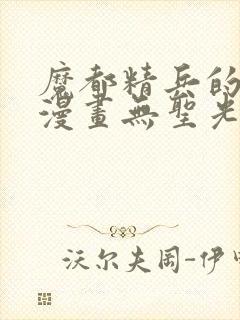 魔都精兵的
漫畫無聖光
沃尔夫冈-伊